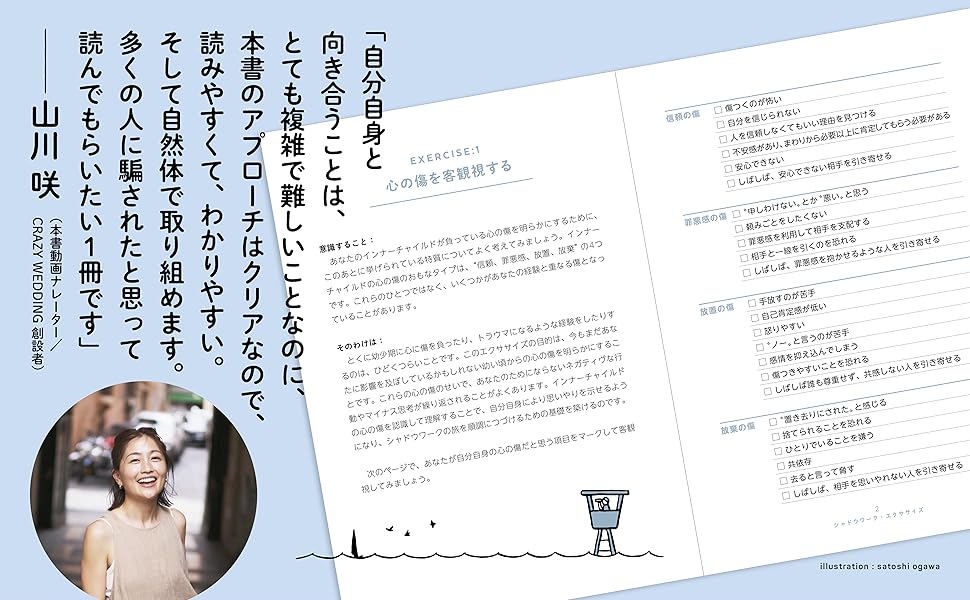 「自分自身と
向き合うことは、
とても複雑で難しいことなのに、
本書のアプローチはクリアなので、
読みやすくて、わかりやすい。
そして自然体で取り組めます。
多くの人に騙されたと思って
読んでもらいたい1冊です」
── 山川 咲
（本書動画ナレーター／
CRAZY WEDDING 創設者）
EXERCISE:1
心の傷を客観視する
意識すること：
あなたのインナーチャイルドが負っている心の傷を明らかにするために、
このあとに挙げられている特質についてよく考えてみましょう。インナー
チャイルドの心の傷のおもなタイプは、“信頼、罪悪感、放置、放棄” の4つ
です。これらのひとつではなく、いくつかがあなたの経験と重なる傷となっ
ていることがあります。
そのわけは：
とくに幼少期に心に傷を負ったり、トラウマになるような経験をしたりす
るのは、ひどくつらいことです。このエクササイズの目的は、今もまだあな
たに影響を及ぼしているかもしれない幼い頃からの心の傷を明らかにするこ
とです。これらの心の傷のせいで、あなたのためにならないネガティヴな行
動やマイナス思考が繰り返されることがよくあります。インナーチャイルド
の心の傷を認識して理解することで、自分自身により思いやりを示せるよう
になり、シャドウワークの旅を順調につづけるための基礎を築けるのです。
次のページで、あなたが自分自身の心の傷だと思う項目をマークして客観
視してみましょう。
信頼の傷
□ 傷つくのが怖い
□ 自分を信じられない
□ 人を信頼しなくてもいい理由を見つける
□ 不安感があり、まわりから必要以上に肯定してもらう必要がある
□ 安心できない
□ しばしば、安心できない相手を引き寄せる
罪悪感の傷
□ “申しわけない。とか “悪い。と思う
□ 頼みごとをしたくない
□ 罪悪感を利用して相手を支配する
□ 相手と一線を引くのを恐れる
□ しばしば、罪悪感を抱かせるような人を引き寄せる
放置の傷
□ 手放すのが苦手
□ 自己肯定感が低い
□ 怒りやすい
□ “ノー。と言うのが苦手
□ 感情を抑え込んでしまう
□ 傷つきやすいことを恐れる
□ しばしば誰も尊重せず、共感しない人を引き寄せる
放棄の傷
□ “置き去りにされた。と感じる
□ 捨てられることを恐れる
□ ひとりでいることを嫌う
□ 共依存
□ 去ると言って脅す
□ しばしば、相手を思いやれない人を引き寄せる
2
シャドウワーク・エクササイズ
illustration : satoshi ogawa